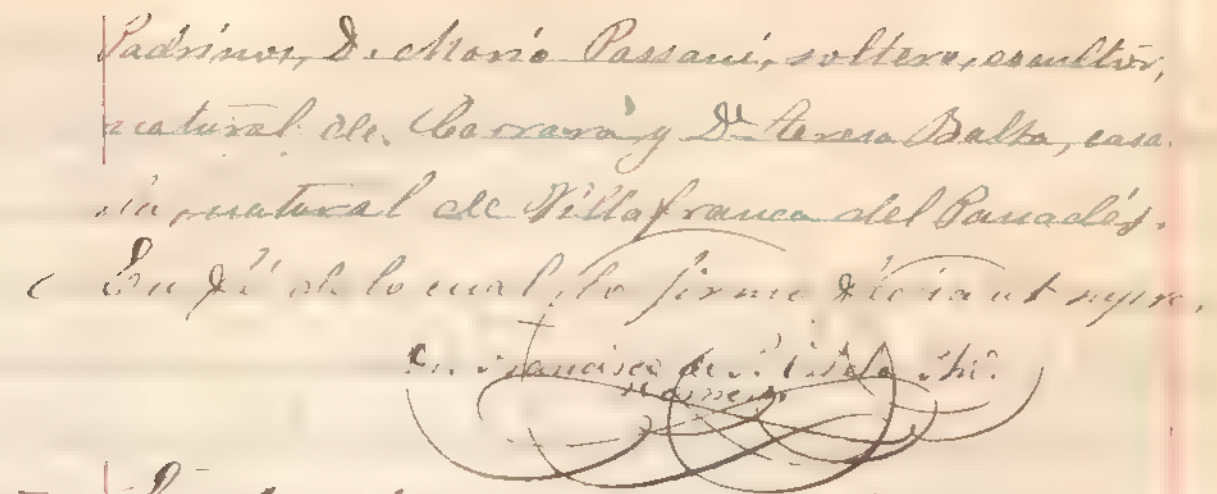 Padrinos, D. Mario Passani, soltero, escultor,
natural de Carrara y Dª Teresa Balta, casa-
da, natural de Villafranca del Panadés.
En fé de lo cual, lo firmo día ut supra,
Francisco de P.